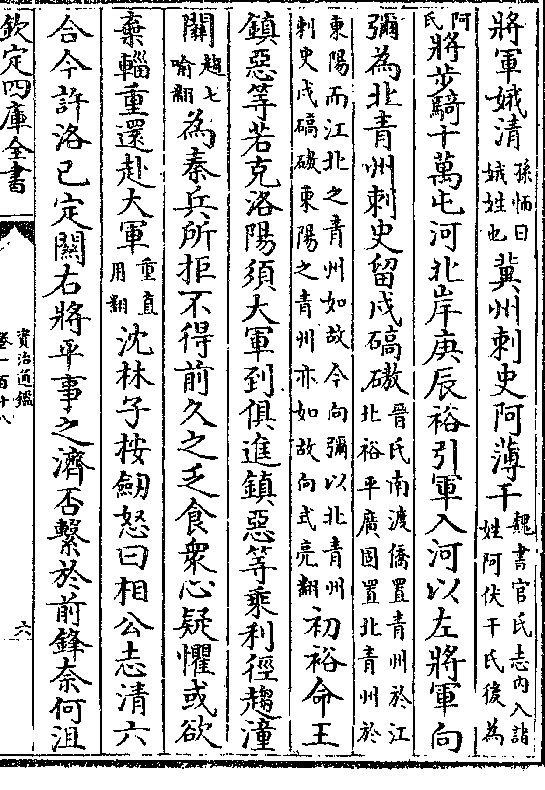 將軍娥清孫愐曰娥姓也冀州刺史阿薄干魏書官氏志内入諸姓阿伏干氏後為
阿氏將步騎十萬屯河北岸庚辰裕引軍入河以左將軍向
彌為北青州刺史留戍碻磝晉氏南渡僑置青州於江北裕平廣固置北青州於
東陽而江北之青州如故今向彌以北青州刺史戍碻磝東陽之青州亦如故向式亮翻初裕命王
鎮惡等若克洛陽須大軍到俱進鎮惡等乘利徑趨潼
關趨七喻翻為秦兵所拒不得前久之乏食衆心疑懼或欲
棄輜重還赴大軍重直用翻沈林子按劒怒曰相公志清六
合今許洛已定關右將平事之濟否繫於前鋒奈何沮
欽定四庫全書
資治通鑑
卷一百十八
六